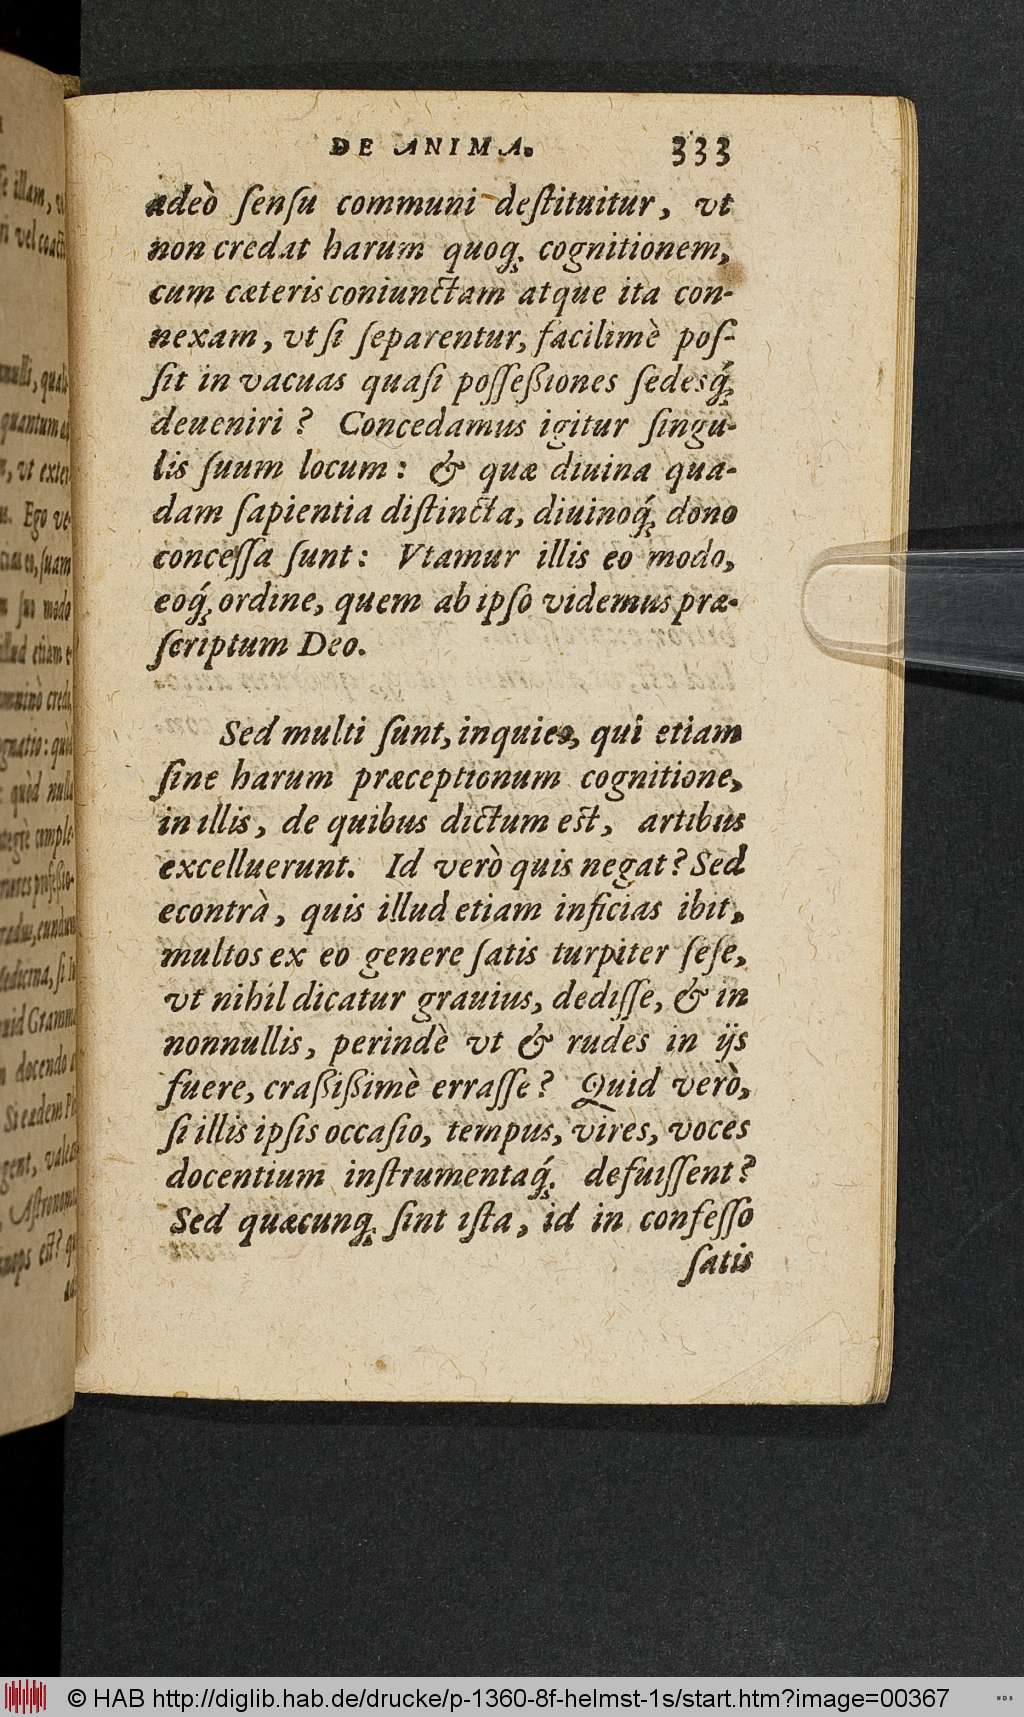 DE ANIMA. 333
adeò ſenſu communi deſtituitur, vt
non credat harum quoq; cognitionem,
cum cæteris coniunctam atque ita con-
nexam, vt ſi ſeparentur, facilimè poſ-
ſit in vacuas quaſi poſſeßiones ſedesq́;
deueniri? Concedamus igitur ſingu-
lis ſuum locum: & quæ diuina qua-
dam ſapientia diſtincta, diuinoq́; dono
conceſſa ſunt: Vtamur illis eo modo,
eoq́; ordine, quem ab ipſo videmus præ-
ſcriptum Deo.
Sed multi ſunt, inquies, qui etiam
ſine harum præceptionum cognitione,
in illis, de quibus dictum est, artibus
excelluerunt. Id verò quis negat? Sed
econtrà, quis illud etiam inficias ibit,
multos ex eo genere ſatis turpiter ſeſe,
vt nihil dicatur grauius, dediſſe, & in
nonnullis, perindè vt & rudes in ijs
fuere, craßißimè erraſſe? Quid verò,
ſi illis ipſis occaſio, tempus, vires, voces
docentium inſtrumentaq́; defuiſſent?
Sed quæcunq; ſint iſta, id in confeſſo
ſatis
ſe illam,
ri vel
quantum
, vt exter
. Ego ve-
eo, ſuam
ſuo modo
illud etiam
credo
: quòd
quòd nulla
comple-
Medicina, ſi
quid Gramma
docendo
Si eadem
Aſtronomia
est?
© HAB http://diglib.hab.de/drucke/p-1360-8f-helmst-1s/start.htm?image=00367